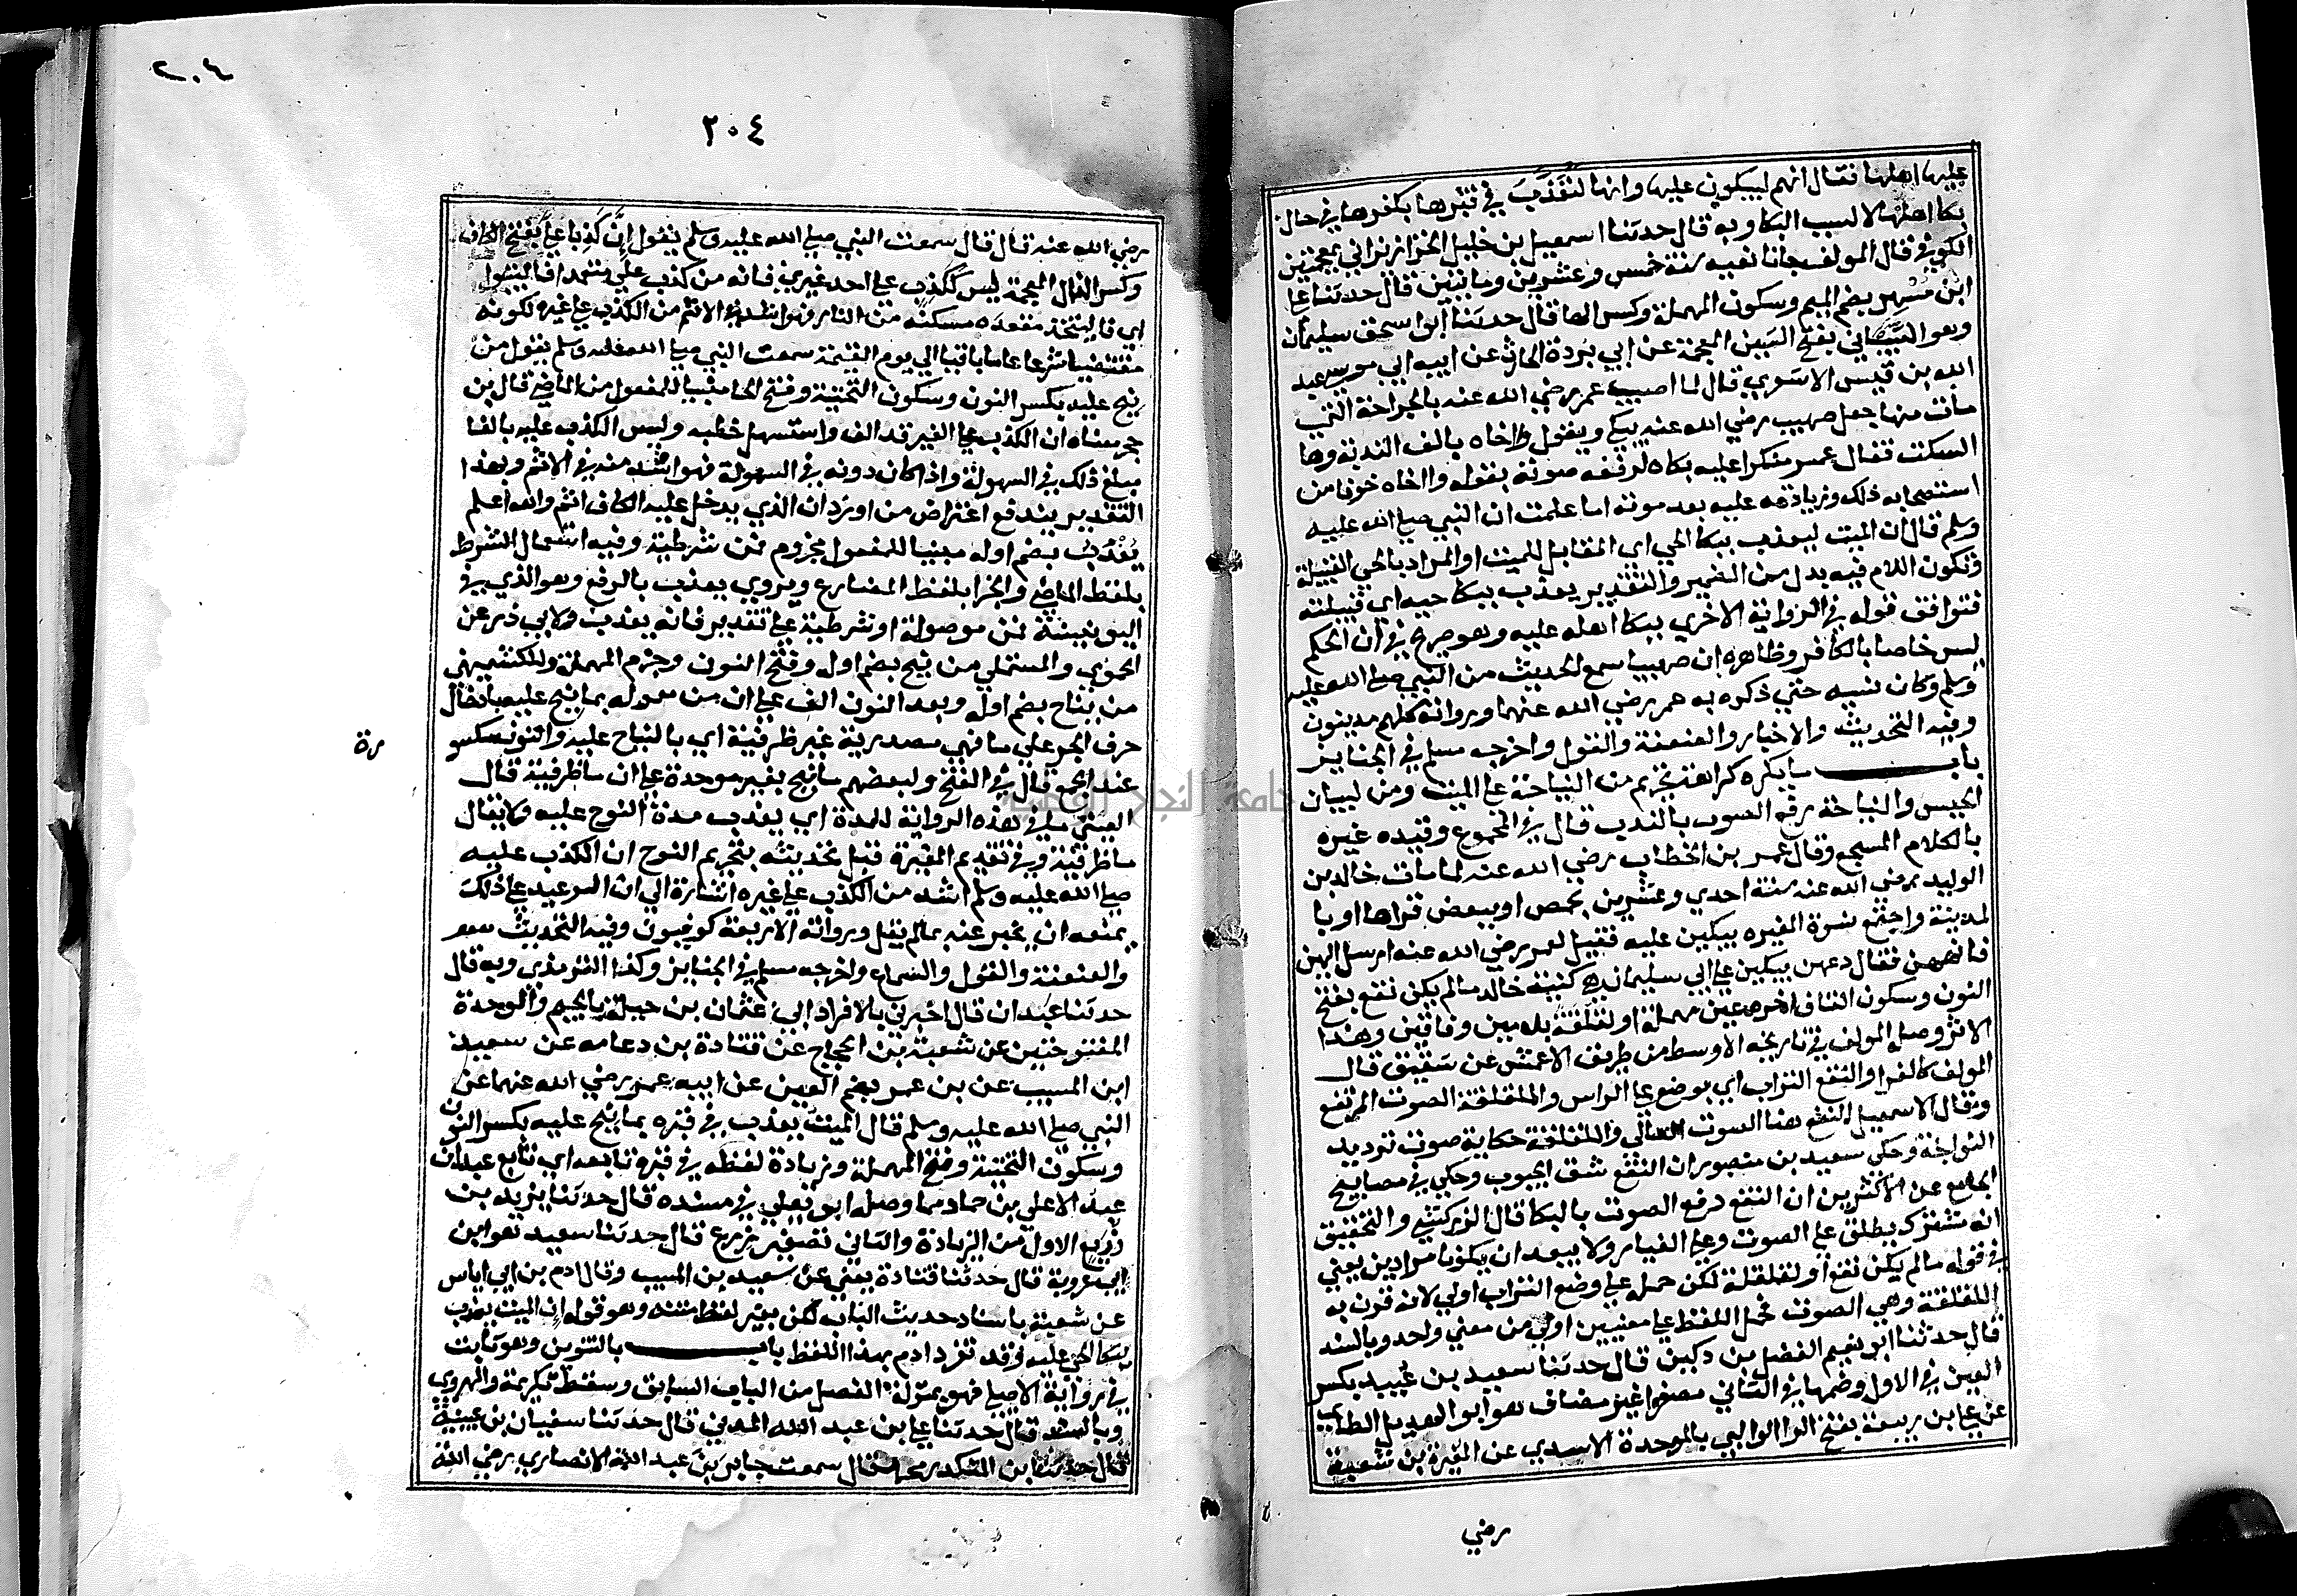 عليها اهلها فقال انهم ليبكون عليها وانها لتعذب في قبرها بكفرها في حال
بكا اهلها لا لسبب البكا وبه قال حدثنا اسمعيل بن خليل الخزاز بزاي بمعجمتين
الكوفي قال المولف جانا نعيه سنة خمس وعشرين وماتين قال حدثنا علي
ابن مسهر بضم الميم وسكون المهملة وكسر الها قال حدثنا ابو اسحق سليمان
وهو الشيباني بفتح الشين المعجمة عن ابي بردة الحارث عن ابيه ابي موسي عبد
الله بن قيس الاشعري قال لما اصيب عمر رضي الله عنه بالجراحة التي
مات منها جعل صهيب رضي الله عنه يبكي ويقول وااخاه بالف الندبة وها
السكت فقال عمر منكرا عليه بكاه لرفعه صوته بقوله وااخاه خوفا من
استصحابه ذلك وزيادته عليه بعد موته اما علمت ان النبي صلي الله عليه
وسلم قال ان الميت ليعذب ببكا الحي اي المقابل للميت او المراد بالحي القبيلة
وتكون اللام فيه بدل من الضمير والتقدير يعذب ببكا حيه اي قبيلته
فتوافق قوله في الرواية الاخري ببكا اهله عليه وهو صريح في ان الحكم
ليس خاصا بالكافر وظاهره ان صهيبا سمع الحديث من النبي صلي الله عليه
وسلم وكان نسيه حتي ذكره به عمر رضي الله عنهما ورواته كلهم مدينون
وفيه التحديث والاخبار والعنعنة والقول واخرجه مسلم في الجنايز
باب ما يكره كراهة تحريم من النياحة علي الميت ومن لبيان
الجيس والنياحة رفع الصوت بالندب قال في المجموع وقيده غيره
بالكلام المسجع وقال عمر بن الخطاب رضي الله عنه لما مات خالد بن
الوليد رضي الله عنه سنة احدي وعشرين بحمص او ببعض قراها او با
لمدينة واجتمع نسوة المغيره يبكين عليه فقيل لعمر رضي الله عنه ارسل اليهن
فانههن فقال دعهن يبكين علي ابي سليمان هي كنية خالد ما لم يكن نقع بفتح
النون وسكون القاف اخره عين مهملة او لقلقة بلامين وقافين وهذا
الاثر وصله المولف في تاريخه الاوسط من طريق الاعمش عن شقيق قال
المولف كالفرا والنقع التراب اي يوضع علي الراس واللقلقة الصوت المرتفع
وقال الاسمعيلي النقع هنا الصوت العالي واللقلقة حكاية صوت ترديد
النواحة وحكي سعيد بن منصور ان النقع شق الجيوب وحكي في مصابيح
الجامع عن الاكثرين ان النقع رفع الصوت بالبكا قال الزركشي والتحقيق
انه مشترك يطلق علي الصوت وعلي الغبار ولا يبعد ان يكونا مرادين يعني
في قوله ما لم يكن نقع او لقلقة لكن حمله علي وضع التراب اولي لانه قرن به
اللقلقة وهي الصوت فحمل اللفظ علي معنيين اولي من معني واحد وبالسند
قال حدثنا ابو نعيم الفضل بن دكين قال حدثنا سعيد بن عبيد بكسر
العين في الاول وضمها في الثاني مصغرا غير مضاف هو ابو الهديل الطاي
عن علي بن ربيعة بفتح الرا الوالبي بالموحدة الاسدي عن المغيرة بن شعبة
رضي
٢٠٤
٢٠٤
رضي الله عنه قال قال سمعت النبي صلي الله عليه وسلم يقول ان كذبا علي بفتح الكاف
وكسر الذال المعجمة ليس ككذب علي احد غيري فانه من كذب علي متعمدا فاليتبوا
اي فاليتخذ مقعده مسكنه من النار فهو اشد في الاثم من الكذب علي غيره لكونه
مقتضيا شرعا عاما باقيا الي يوم القيمة سمعت النبي صلي الله عليه وسلم يقول من
نيح عليه بكسر النون وسكون التحتية وفتح الحا مبنيا للمفعول من الماضي قال بن
حجر معناه ان الكذب علي الغير قد الف واستسهل خطبه وليس الكذب عليه بالغا
مبلغ ذلك في السهولة واذا كان دونه في السهولة فهو اشد منه في الاثم وبهذا
التقدير يندفع اعتراض من اورد ان الذي يدخل عليه الكاف اثم والله اعلم
يعذب بضم اوله مبنيا للمفعول مجزوم فمن شرطية وفيه استعمال الشرط
بلفظ الماضي والجزا بلفظ المضارع ويروي يعذب بالرفع وهو الذي في
اليونينية فمن موصولة او شرطية علي تقدير فانه يعذب ولابي ذر عن
الحموي والمستملي من ينح بضم اوله وفتح النون وجزم المهملة وللكشميهني
من يناح بضم اوله وبعد النون الف علي ان من موصوله بما نيح عليه بادخال
حرف الجر علي ما فهي مصدرية غير ظرفية اي بالنياح عليه والنون مكسو
رة
عند الجمع قال في الفتح ولبعضهم ما نيح بغير موحدة علي ان ما ظرفية قال
العيني ما في هذه الرواية للمدة اي يعذب مدة النوح عليه ولا يقال
ما ظرفية وفي تقديم المغيرة قبل تحديثه بتحريم النوح ان الكذب عليه
صلي الله عليه وسلم اشد من الكذب علي غيره اشارة الي ان الوعيد علي ذلك
يمنعه ان يخبر عنه بما لم يقل ورواته الاربعة كوفيون وفيه التحديث
والعنعنة والقول والسماع واخرجه مسلم في الجنايز وكذا الترمذي وبه قال
حدثنا عبدان قال اخبرني بالافراد ابي عثمان بن جبلة بالجيم والموحدة
المفتوحتين عن شعبة بن الحجاج عن قتادة بن دعامه عن سعيد
ابن المسيب عن بن عمر بضم العين عن ابيه عمر رضي الله عنهما عن
النبي صلي الله عليه وسلم قال الميت يعذب في قبره بما نيح عليه بكسر النون
وسكون التحتية وفتح المهملة وزيادة لفظه في قبره تابعه اي تابع عبدان
عبد الاعلي بن حماد مما وصله ابو يعلي في مسنده قال حدثنا يزيد بن
زريع الاول من الزيادة والثاني تصغير زرع قال حدثنا سعيد هو ابن
ابي عروبة قال حدثنا قتادة يعني عن سعيد بن المسيب وقال ادم بن ابي اياس
عن شعبة باسناد حديث الباب لكن بغير لفظ متنه وهو قوله ان الميت يعذب
ببكا الحي عليه وقد تفرد ادم بهذا اللفظ باب بالتنوين وهو ثابت
في رواية الاصيلي فهو بمنزلة الفصل من الباب السابق وسقط لكريمة والهروي
وبالسند قال حدثنا علي بن عبد الله المديني قال حدثنا سفيان بن عيينة
قال حدثنا بن المنكدر محمد قال سمعت جابر بن عبد الله الانصاري رضي الله
جامعة النجاح الوطنية